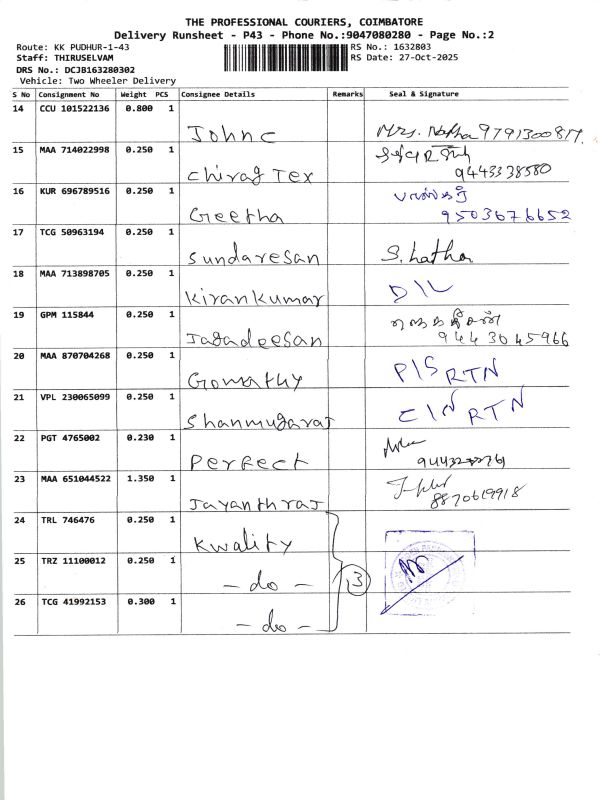 THE PROFESSIONAL COURIERS, COIMBATORE
Delivery Runsheet - P43 - Phone No.:9047080280 - Page No.:2
Route: KK PUDHUR-1-43 RS No.: 1632803
Staff: THIRUSELVAM RS Date: 27-Oct-2025
DRS No.: DCJB163280302
Vehicle: Two Wheeler Delivery
S No Consignment No Weight PCS Consignee Details Remarks Seal & Signature
14 CCU 101522136 0.800 1
John C Mrs. 9791300817
15 MAA 714022998 0.250 1
Chirag Tex 9443338580
16 KUR 696789516 0.250 1
Geetha 9503676652
17 TCG 50963194 0.250 1
Sundaresan S. Latha
18 MAA 713898705 0.250 1
Kirankumar D/L
19 GPM 115844 0.250 1
Jagadeesan ஜெகதீசன் 9443045966
20 MAA 870704268 0.250 1
Gomathy P/S RTN
21 VPL 230065099 0.250 1
Shanmugaraj C/N RTN
22 PGT 4765002 0.230 1
Perfect
23 MAA 651044522 1.350 1
Jayanthraj 8870619918
24 TRL 746476 0.250 1
Kwality
25 TRZ 11100012 0.250 1
- do - 3
26 TCG 41992153 0.300 1
- do -